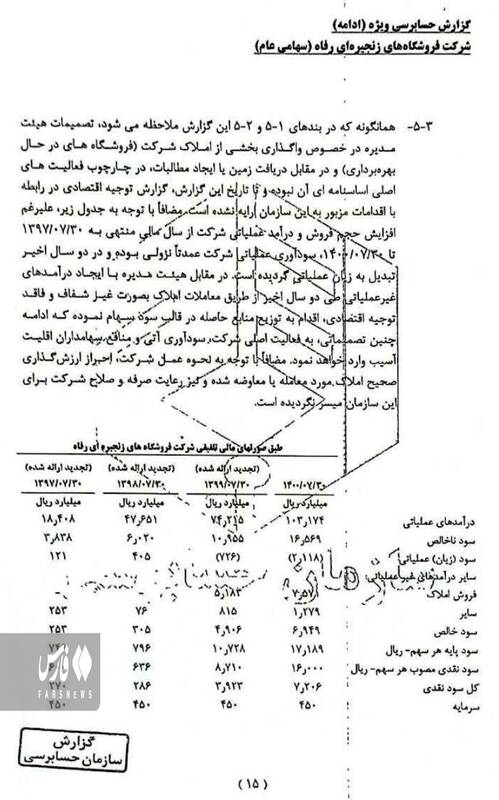 گزارش حسابرسی ویژه (ادامه)
شرکت فروشگاه‌های زنجیره‌ای رفاه (سهامی عام)
۵-۳- همانگونه که در بندهای ۱-۵ و ۲-۵ این گزارش ملاحظه می شود، تصمیمات هیئت
مدیره در خصوص واگذاری بخشی از املاک شرکت (فروشگاه های در حال
بهره‌برداری) و در مقابل دریافت زمین یا ایجاد مطالبات، در چارچوب فعالیت های
اصلی اساسنامه ای آن نبوده و تا تاریخ این گزارش، گزارش توجیه اقتصادی در رابطه
با اقدامات مزبور به این سازمان ارایه نشده است. مضافاً با توجه به جدول زیر، علیرغم
افزایش حجم فروش و درآمد عملیاتی شرکت از سال مالی منتهی به ۱۳۹۷/۰۷/۳۰
تا ۱۴۰۰/۰۷/۳۰، سودآوری عملیاتی شرکت عمدتاً نزولی بوده و در دو سال اخیر
تبدیل به زیان عملیاتی گردیده است. در مقابل هیئت مدیره با ایجاد درآمدهای
غیرعملیاتی طی دو سال اخیر از طریق معاملات املاک بصورت غیر شفاف و فاقد
توجیه اقتصادی، اقدام به توزیع منابع حاصله در قالب سود سهام نموده که ادامه
چنین تصمیماتی، به فعالیت اصلی شرکت، سودآوری آتی و منافع سهامداران اقلیت
آسیب وارد خواهد نمود. مضافاً با توجه به نحوه عمل شرکت، احراز ارزش‌گذاری
صحیح املاک مورد معامله یا معاوضه شده و نیز رعایت صرفه و صلاح شرکت برای
این سازمان میسر نگردیده است.
طبق صورتهای مالی تلفیقی شرکت فروشگاه های زنجیره ای رفاه
(تجدید ارائه شده) (تجدید ارائه شده) (تجدید ارائه شده)
۱۴۰۰/۰۷/۳۰ ۱۳۹۹/۰۷/۳۰ ۱۳۹۸/۰۷/۳۰ ۱۳۹۷/۰۷/۳۰
میلیارد ریال میلیارد ریال میلیارد ریال میلیارد ریال
درآمدهای عملیاتی ۱۰۳٫۱۷۴ ۷۴٫۲۱۵ ۴۷٫۶۵۱ ۱۸٫۴۰۸
سود ناخالص ۱۶٫۵۶۹ ۱۰٫۹۵۵ ۶٫۰۲۰ ۳٫۸۳۸
سود (زیان) عملیاتی (۲٫۱۱۸) (۷۲۶) ۴۰۵ ۱۲۱
سایر درآمدهای غیر عملیاتی:
فروش املاک ۷٫۵۷۱ ۵٫۱۸۳
سایر ۱٫۲۷۹ ۸۱۵ ۷۶ ۲۵۳
سود خالص ۶٫۹۴۹ ۴٫۹۰۶ ۳۰۵ ۲۵۳
سود پایه هر سهم- ریال ۱۷٫۱۸۹ ۱۰٫۷۲۸ ۷۹۶
سود نقدی مصوب هر سهم- ریال ۱۶٫۰۰۰ ۸٫۷۱۰ ۶۳۶
کل سود نقدی ۷٫۲۰۶ ۳٫۹۲۳ ۲۸۶ ۲۷۰
سرمایه ۴۵۰ ۴۵۰ ۴۵۰ ۴۵۰
فارس
FARSNEWS
گزارش
سازمان حسابرسی
(۱۵)